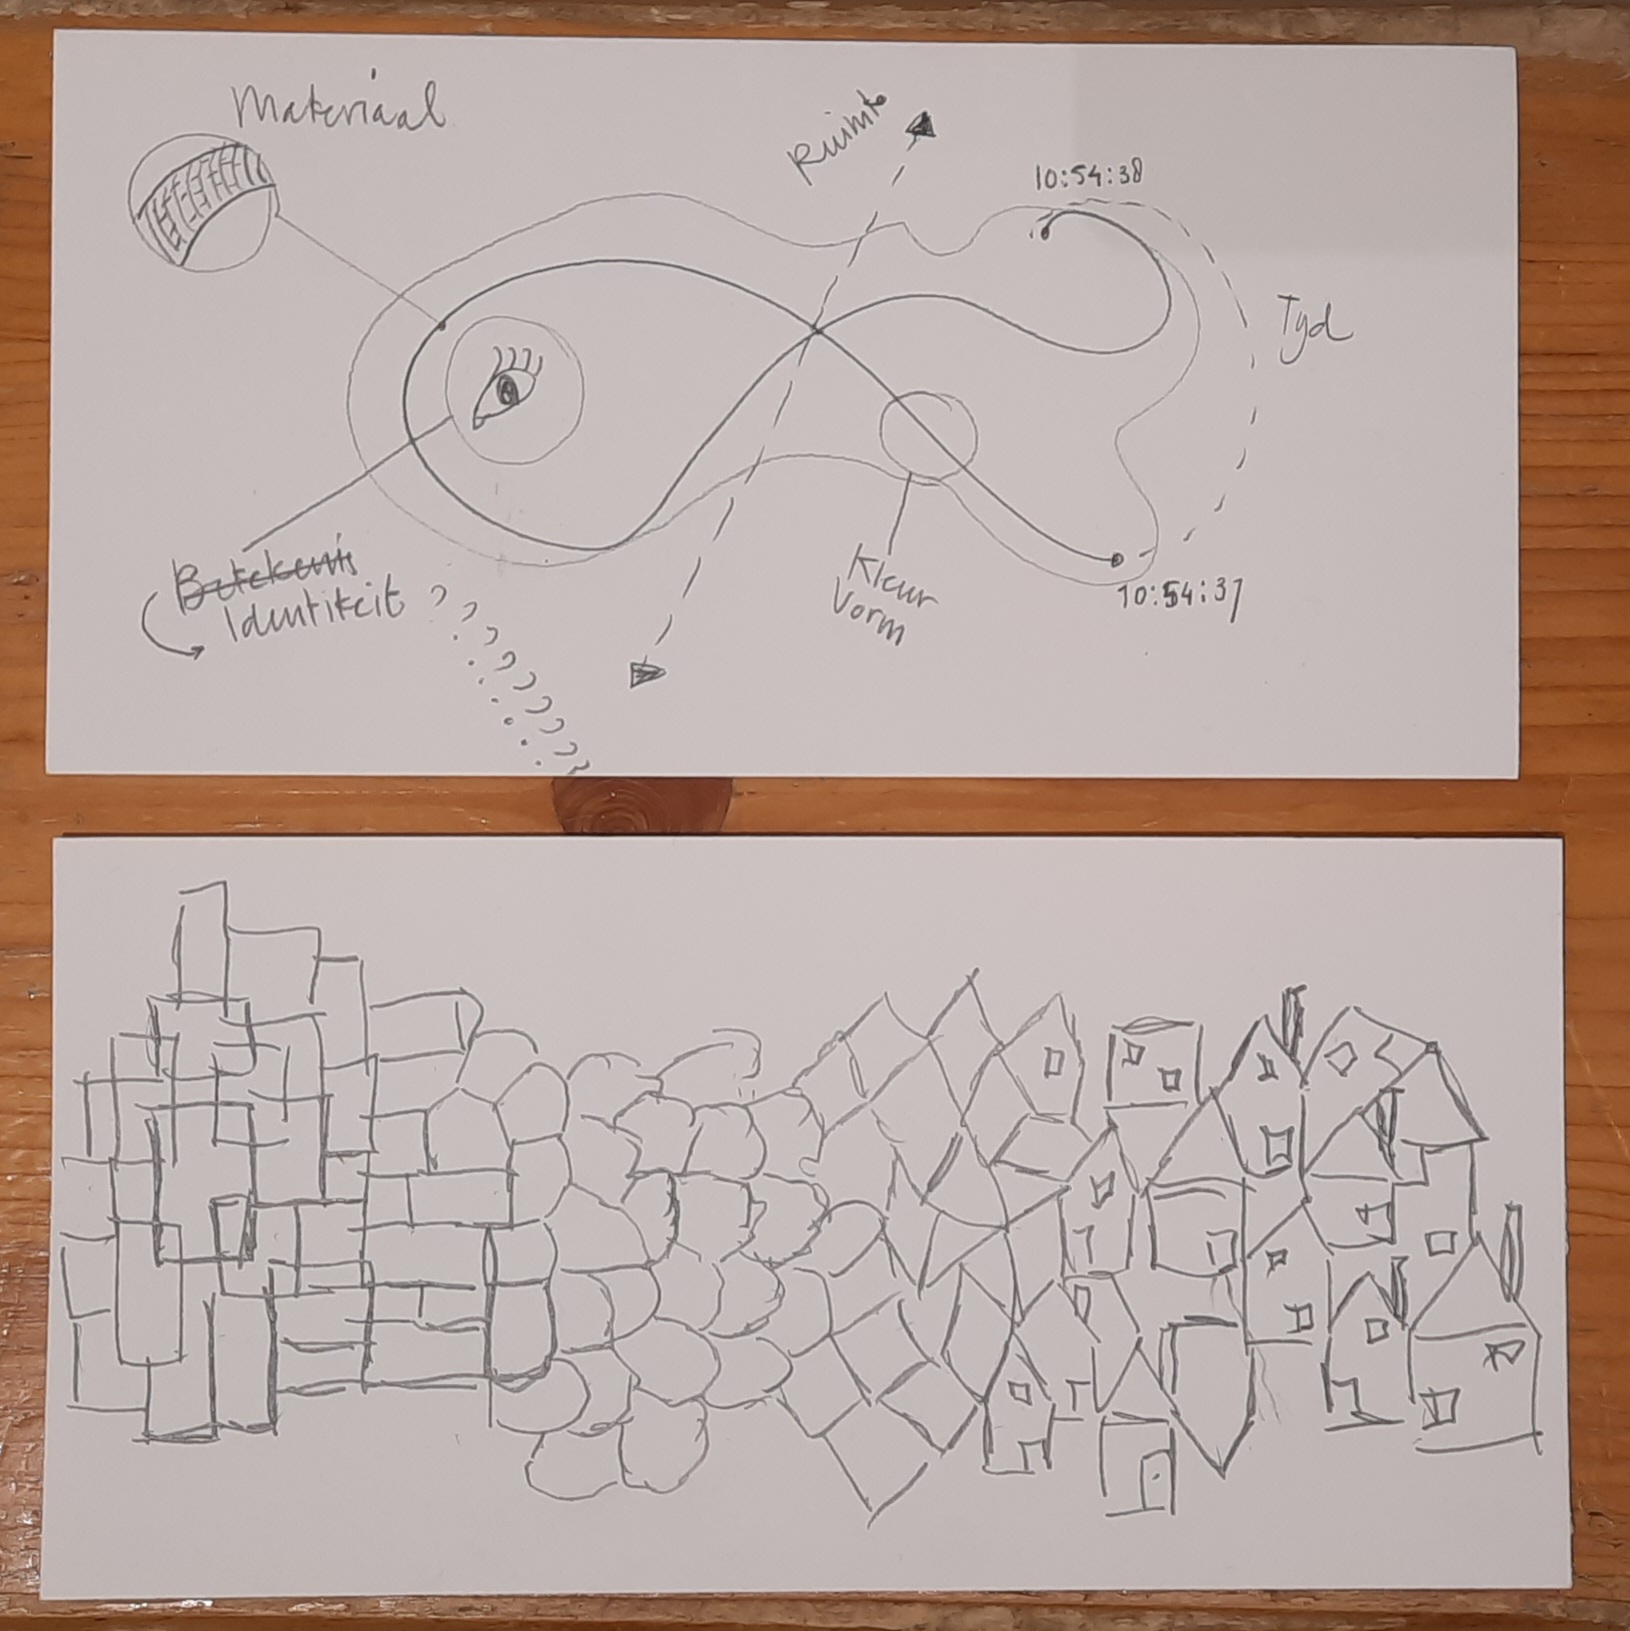 Materiaal
Ruimte
10:54:38
Tyd
Betekenis
Identiteit
Kleur
Vorm
10:54:37